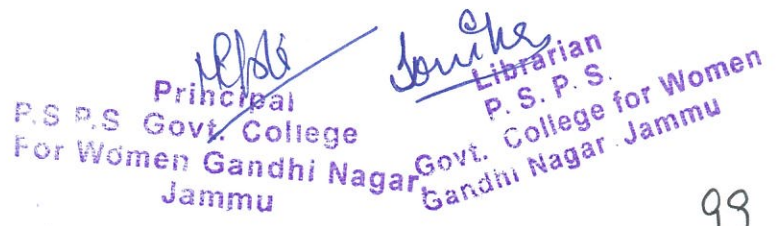 Principal
P.S P.S Govt. College
For Women Gandhi Nagar
Jammu
Librarian
P. S. P. S.
Govt. College for Women
Gandhi Nagar Jammu
99